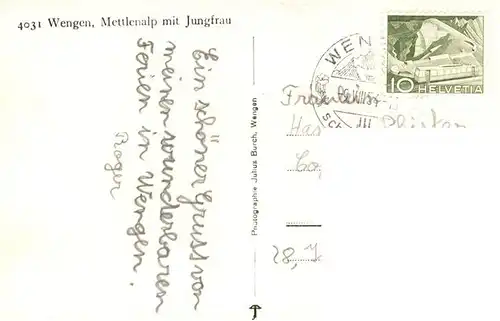 4031 Wengen, Mettlenalp mit Jungfrau
Ein schöner Gruss von
meinen wunderbaren
Ferien in Wengen.
Roger
Photographie Julius Burch, Wengen
WEN
10 HELVETIA
Fräulein
Has
28,